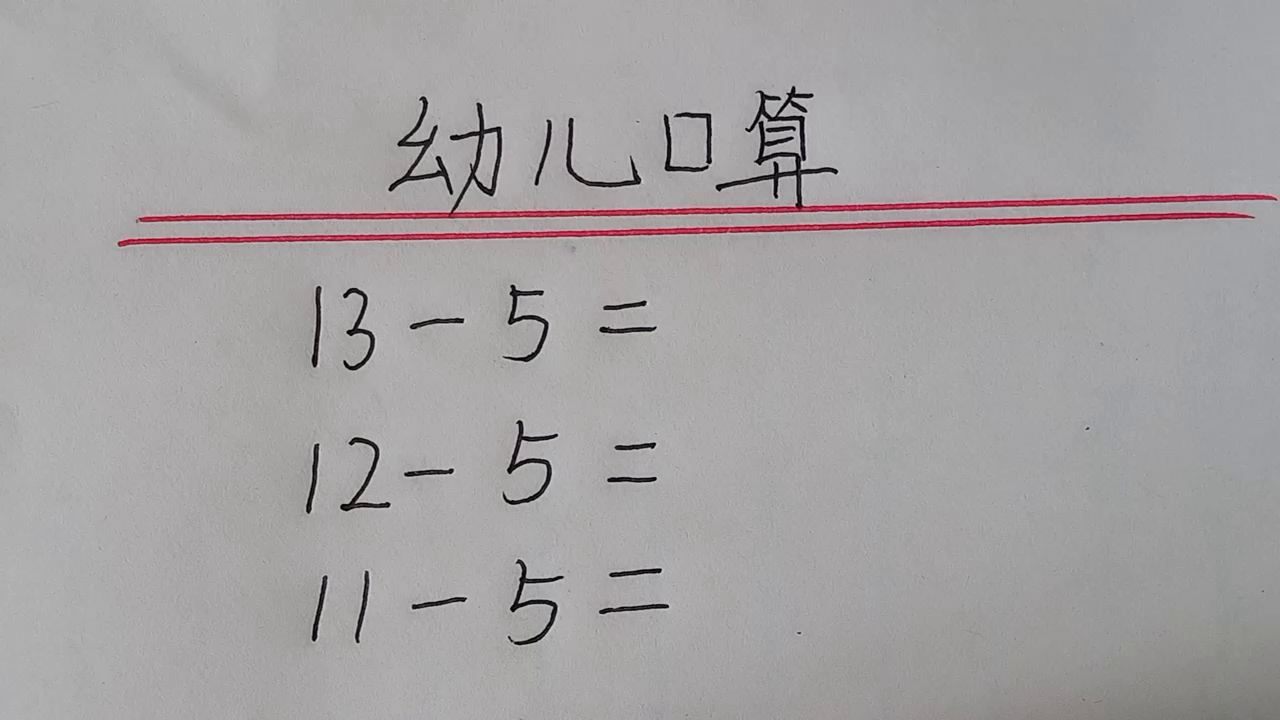 幼儿口算
13 - 5 =
12 - 5 =
11 - 5 =